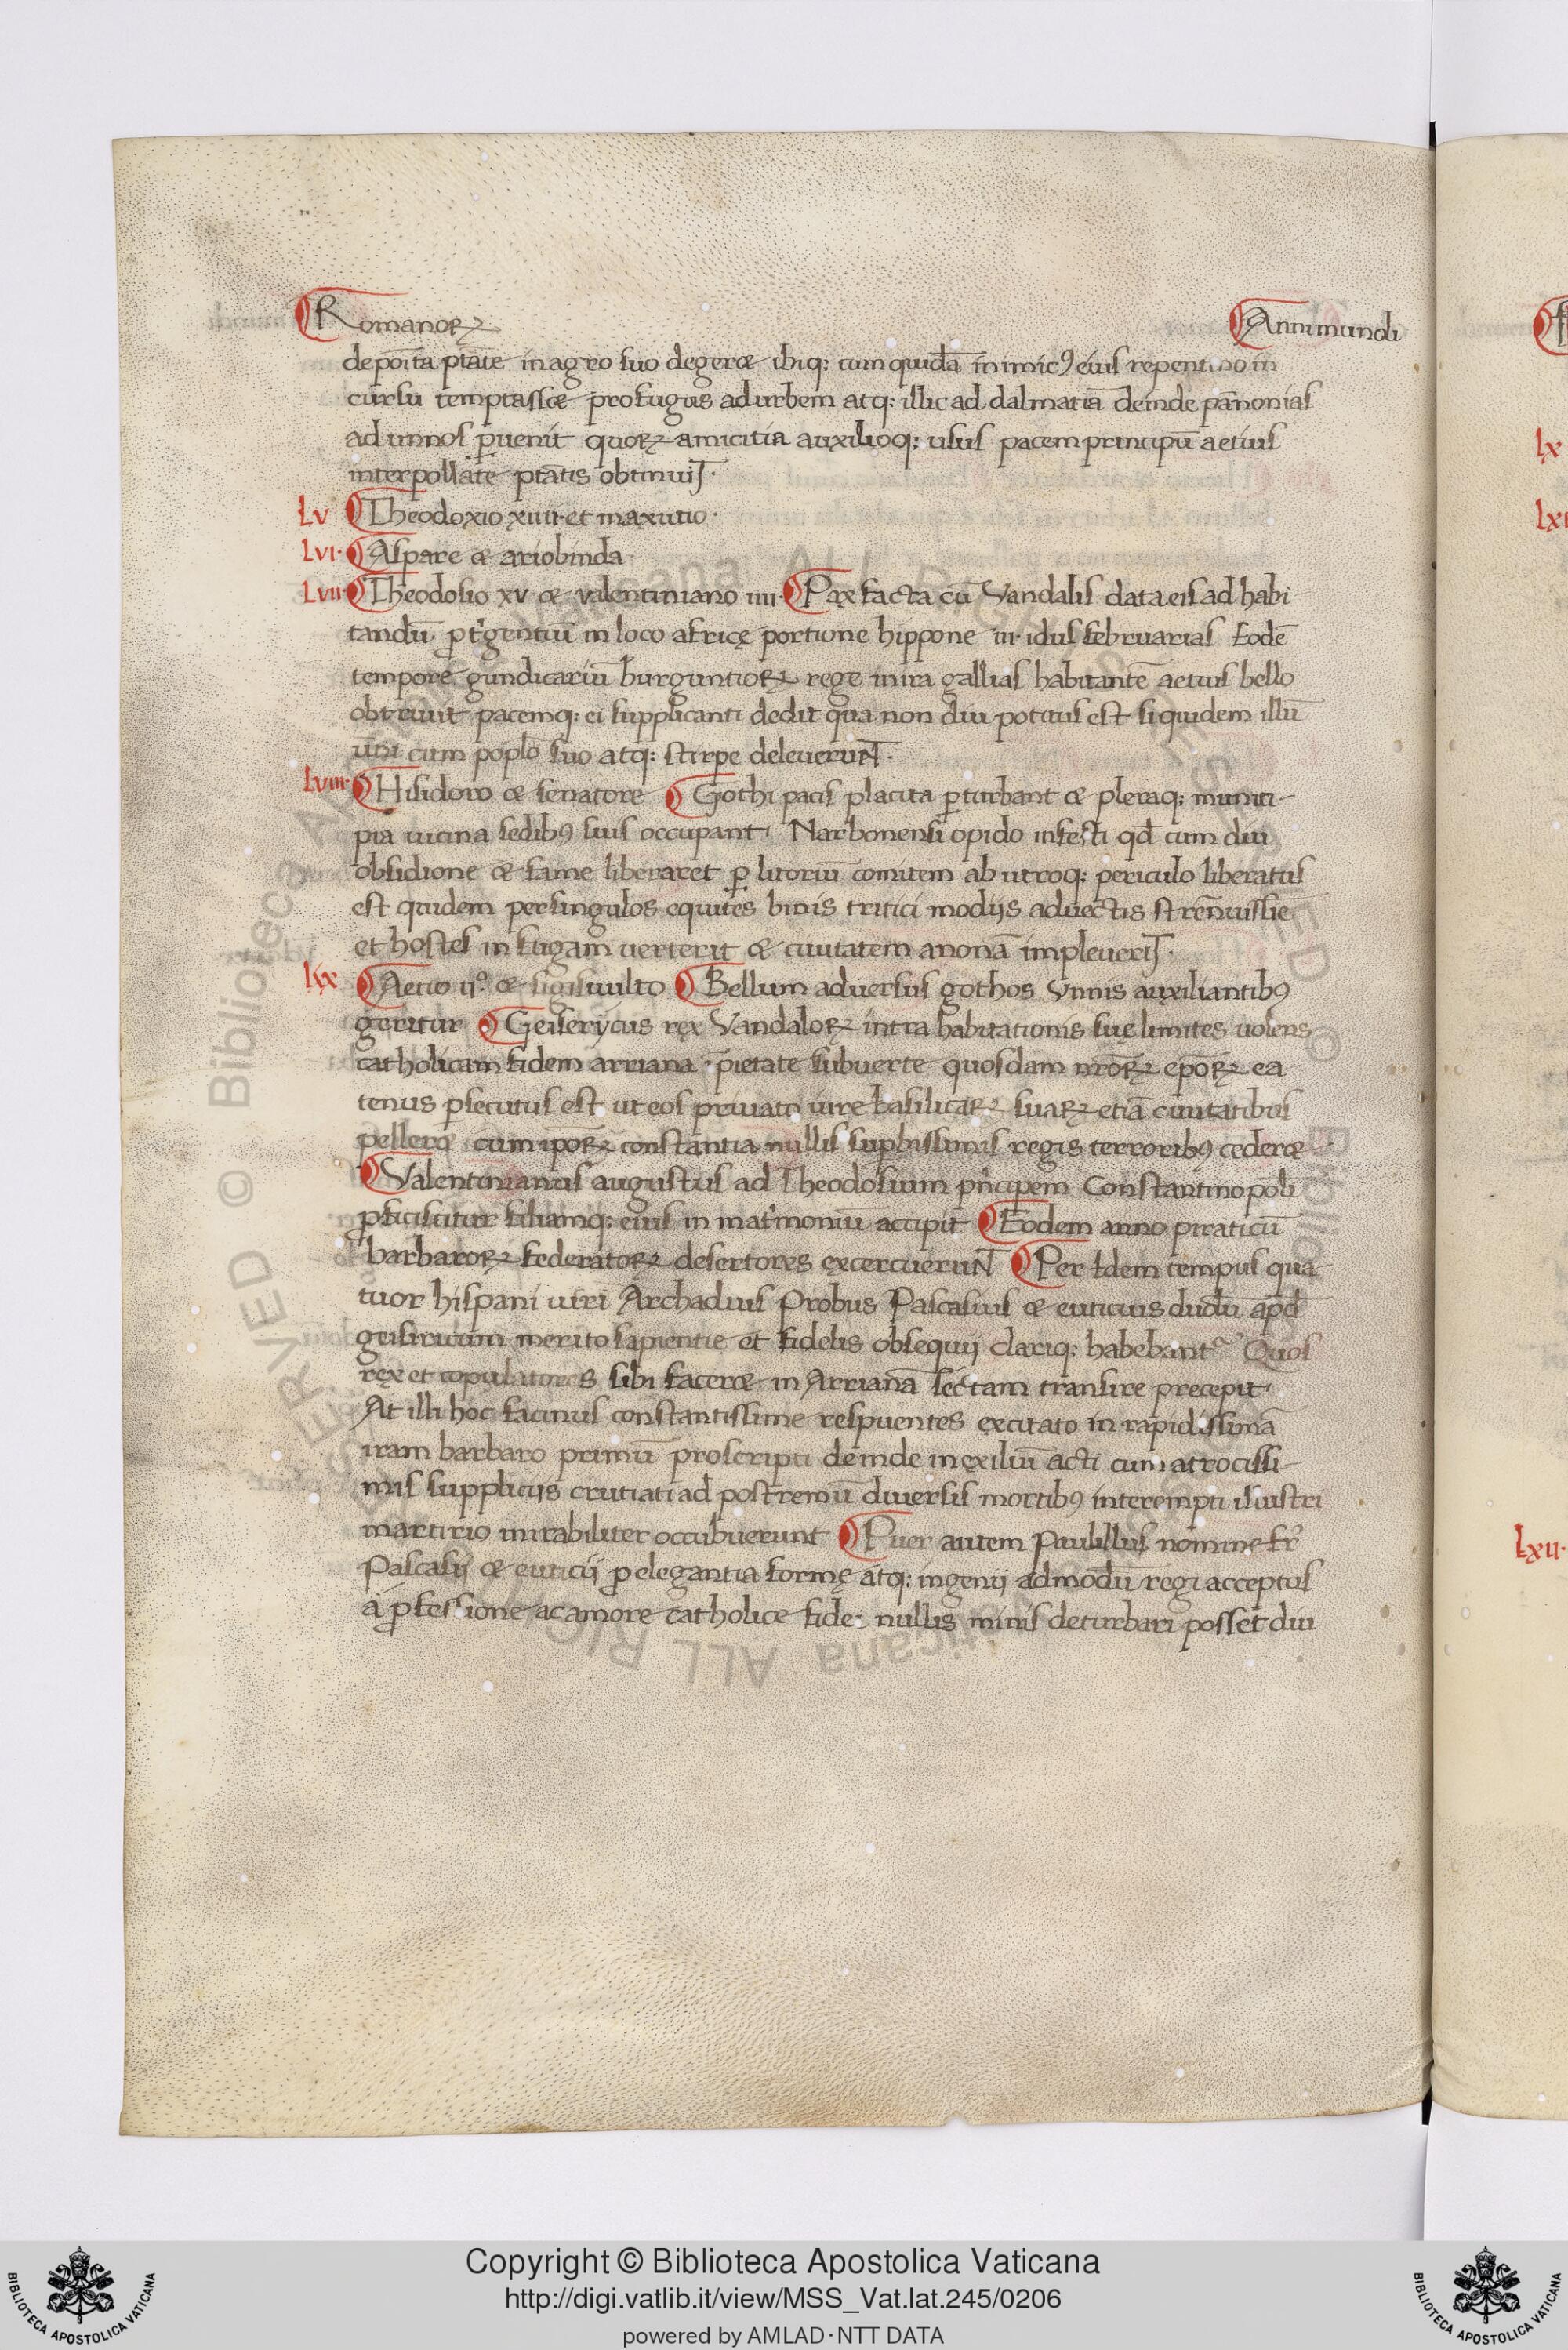 Romanoꝝ Anni mundi
depoita ptāte in agro suo degeræ ibiq: cum quidā inimicꝰ eius repentino in
cursu temptassæ profugus ad urbem atq: illic ad dalmatiā deinde pānonias
ad unnos ꝑuenit quoꝝ amicitia auxilioq: usus pacem principū aetius
interpollate ptātis obtinuiT.
LV Theodoxio xiiii et maximo.
LVI. Aspare æ ariobinda
LVII. Theodosio xv æ valentiniano iiii. Pax facta cū Vandalis data eis ad habi
tandū. ꝑ tͥgentiū in loco africę portione hippone iii. idus februarias Eodē
tempore gundicariū burguntioꝝ rege intra gallias habitantē aetius bello
obtriuit pacemq: ei supplicanti dedit qua non diu potitus est siquidem illū
uni cum poplo suo atq: stirpe deleueruNT.
LVIII. Hisidoro æ senatore Gothi pacis placita ꝑturbant æ pleraq: munici-
pia uicina sedibꝰ suis occupant. Narbonensi opido infesti qđ cum diu
obsidione æ fame liberaret ꝑ litoriū comitem ab utroq: periculo liberatus
est quidem per singulos equites binis tritici modijs aduectis strēnuissie
et hostes in fugam uerterit æ ciuitatem anonā impleueriT.
LIX Aetio ii.º æ sigisuulto Bellum aduersus gothos Vnnis auxiliantibꝰ
geritur Geiserycus rex Vandaloꝝ intra habitationis suę limites uolens
catholicam fidem arriana īpietate subuerte quosdam nr̄oꝝ ep̄oꝝ ea
tenus ꝑsecutus est ut eos priuato iure basilicaꝝ suaꝝ etiā ciuitatibus
pelleræ cum ipoꝝ constantia nullis supbissimis regis terroribꝰ cederæ
Valentinianus augustus ad Theodosium pn̄cipem Constantinopoli
ꝓficiscitur filiamq: eius in matͥmoniū accipit Eodem anno piraticū
barbaroꝝ federatoꝝ desertores exercueruNT Per Idem tempus qua
tuor hispani uiri Archadius Probus Pascasius æ euticius dudū apđ
geisiricum merito sapientie et fidelis obsequij clariq: habebant᷑ Quos
rex et copulatores sibi faceræ in Arrianā sectam transire precepit.
At illi hoc facinus constantissime respuentes excitato in rapidissimā
iram barbaro primū proscripti deinde in exiliū acti cum atrocissi-
mis supplicijs crutiati ad postremū diuersis mortibꝰ interempti ilustri
martirio mirabiliter occubuerunt Puer autem Paulillus nomine fr̄
Pascasij æ euticij ꝑ elegantia formę atq: ingenij admodū regi acceptus
a ꝓfessione ac amore catholice fide: nullis minis deturbari posset diu
lx
lxi
lxii.
Copyright © Biblioteca Apostolica Vaticana
http://digi.vatlib.it/view/MSS_Vat.lat.245/0206
powered by AMLAD·NTT DATA
BIBLIOTECA APOSTOLICA VATICANA
BIBLIOTECA APOSTOLICA VATICANA